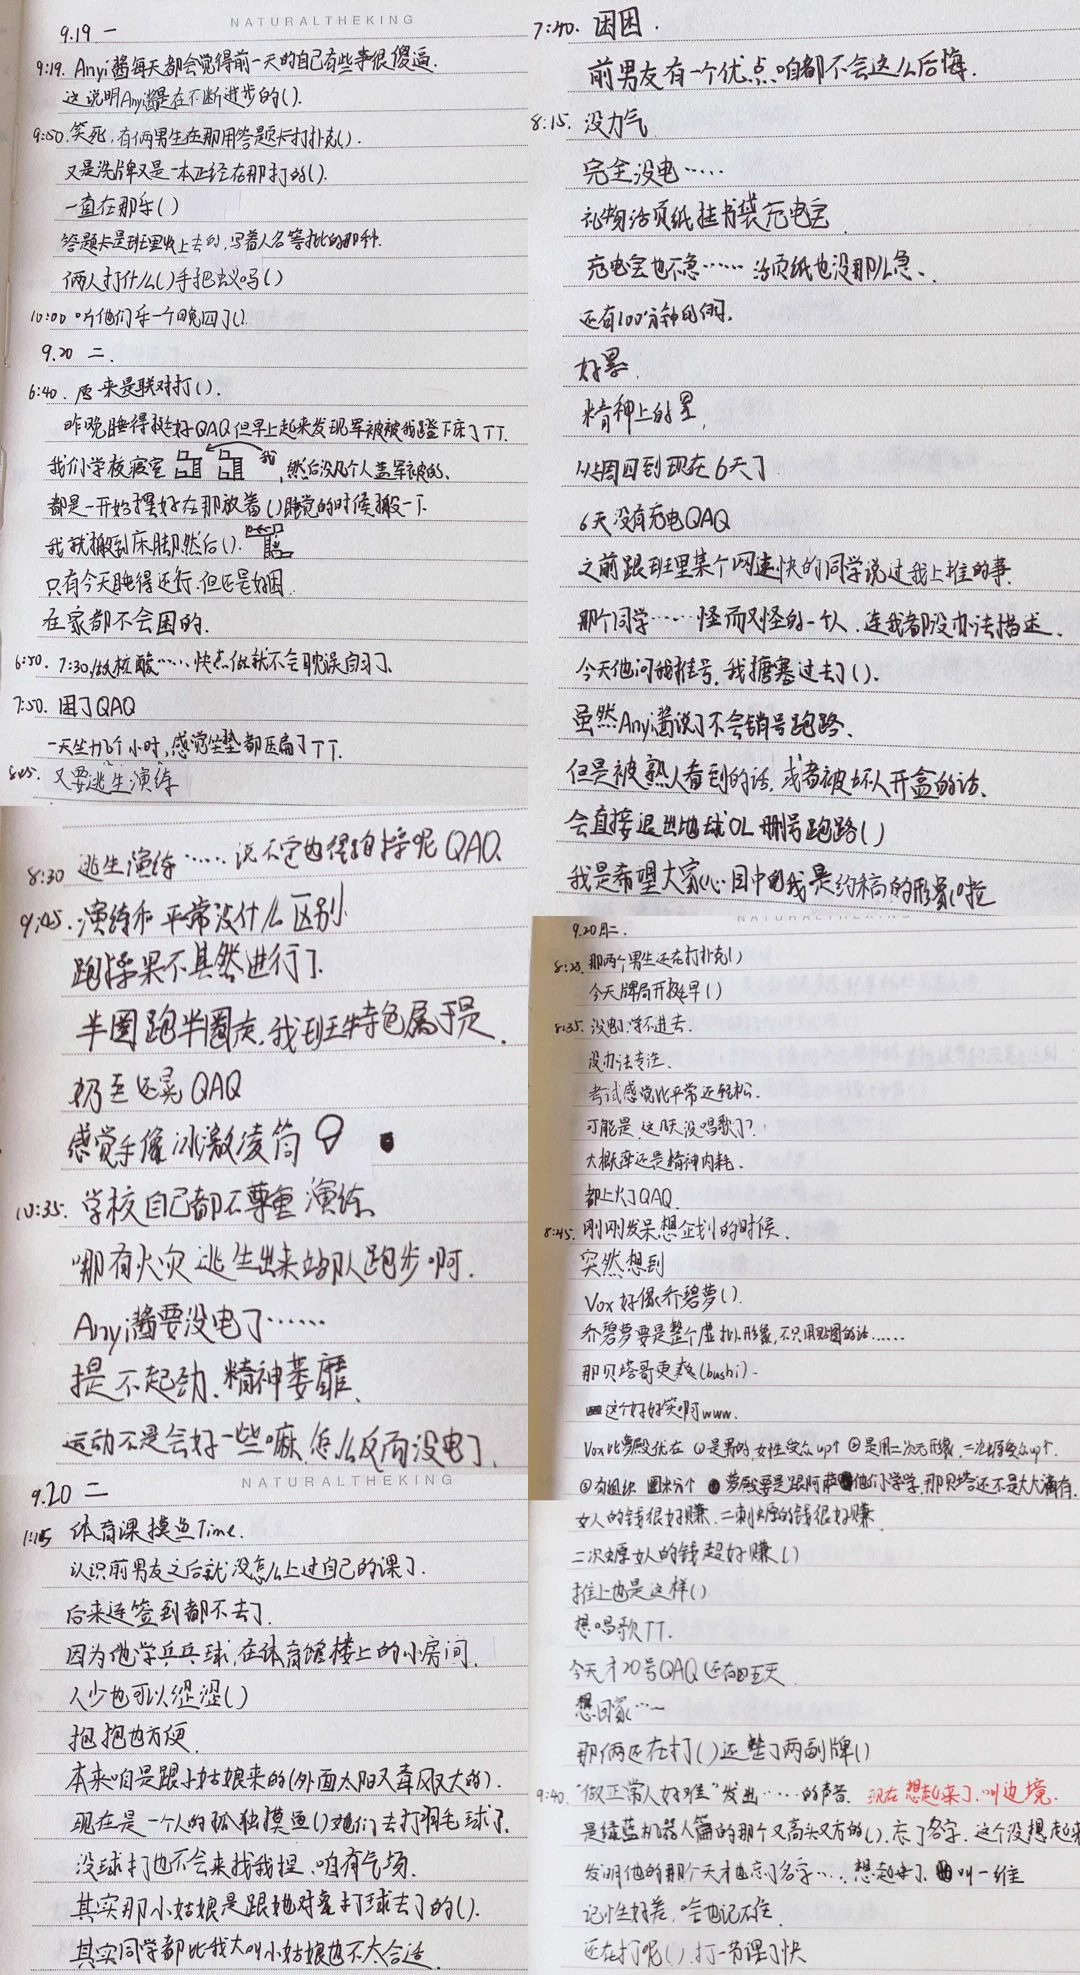 NATURALTHEKING
9.19 一
9:19. Anyi酱每天都会觉得前一天的自己有些事很傻逼.
这说明Anyi酱是在不断进步的().
9:50. 笑死, 有俩男生在那用答题卡打扑克().
又是洗牌又是一本正经在那打的().
一直在那乐()
答题卡是班里收上去的, 写着人名等批的那种.
俩人打什么()手把蚊吗()
10:00 听他们乐一个晚四了().
9.20 二.
6:40. 原来是联对打().
昨晚睡得挺好QAQ但早上起来发现军被被我蹬下床了TT.
我们学校寝室 我, 然后没几个人盖军被的.
都是一开始摆好在那放着()睡觉的时候搬一下.
我就搬到床脚然后().
只有今天睡得还行. 但还是好困.
在家都不会困的.
6:50. 7:30做核酸……快点做就不会耽误自习了.
7:50. 困了QAQ
一天坐十几个小时, 感觉坐垫都压扁了TT.
8:05. 又要逃生演练
8:30 逃生演练……说不定也得自搭呢QAQ.
9:05. 演练和平常没什么区别
跑操果不其然进行了.
半圈跑半圈走. 我班特色属于是.
扔至还晃QAQ
感觉手像冰激凌筒
10:35. 学校自己都不尊重演练.
哪有火灾逃生出来站队跑步啊.
Anyi酱要没电了……
提不起劲. 精神萎靡.
运动不是会好一些嘛, 怎么反而没电了.
NATURALTHEKING
9.20 二
1:15 体育课摸鱼Time.
认识前男友之后就没怎么上过自己的课了.
后来连签到都不去了.
因为他学乒乓球, 在体育馆楼上的小房间.
人少也可以涩涩()
抱抱也方便.
本来咱是跟小姑娘来的(外面太阳又毒风又大的).
现在是一个人的孤独摸鱼()她们去打羽毛球了.
没球打也不会来找我捏. 咱有气场.
其实那小姑娘是跟她对象打球去了的().
其实同学都比我大叫小姑娘也不太合适.
7:40. 困困.
前男友有一个优点咱都不会这么后悔.
8:15. 没力气
完全没电……
礼物活页纸挂书袋充电宝
充电宝也不急……活页纸也没那么急.
还有100分钟的啊.
好累.
精神上的累.
从周四到现在6天了
6天没有充电QAQ
之前跟班里某个网速快的同学说过我上推的事.
那个同学……怪而又怪的一个人. 连我都没办法描述.
今天他问我推号. 我搪塞过去了().
虽然Anyi酱说了不会销号跑路.
但是被熟人看到的话. 或者被坏人开盒的话.
会直接退出地球OL 删号跑路()
我是希望大家心目中的我是约稿的形象啦
NATURALTHEKING
9.20日二.
8:25. 那两个男生还在打扑克()
今天牌局开挺早()
8:35. 没电. 学不进去.
没办法专注.
考试感觉比平常还轻松.
可能是这几天没唱歌了?
大概率还是精神内耗.
都上火了QAQ.
8:45. 刚刚发呆想企划的时候.
突然想到
Vox好像乔碧萝().
乔碧萝要是整个虚拟形象, 不只用贴图的话……
那贝塔哥更爽(bushi).
这个好好笑啊www.
Vox比萝殿优在 ①是男的, 女性受众up↑ ②是用二次元形象, 二次螈受众up↑.
③有组织 圈米分个 萝殿要是跟阿萨他们学学, 那贝塔还不是大大满有.
女人的钱很好赚. 二刺螈的钱很好赚.
二次螈女人的钱超好赚()
推上也是这样()
想唱歌TT.
今天才20号QAQ还有四五天
想回家……
那俩还在打()还整了两副牌()
9:40. "做正常人好难"发出……的声音. 现在想起来了, 叫边境.
是绿蓝机器人篇的那个又高头又方的(). 忘了名字. 这个没想起来
发明他的那个天才也忘了名字…. 想起来了. 叫一维
记性好差, 啥也记不住.
还在打呢() 打一节课了快